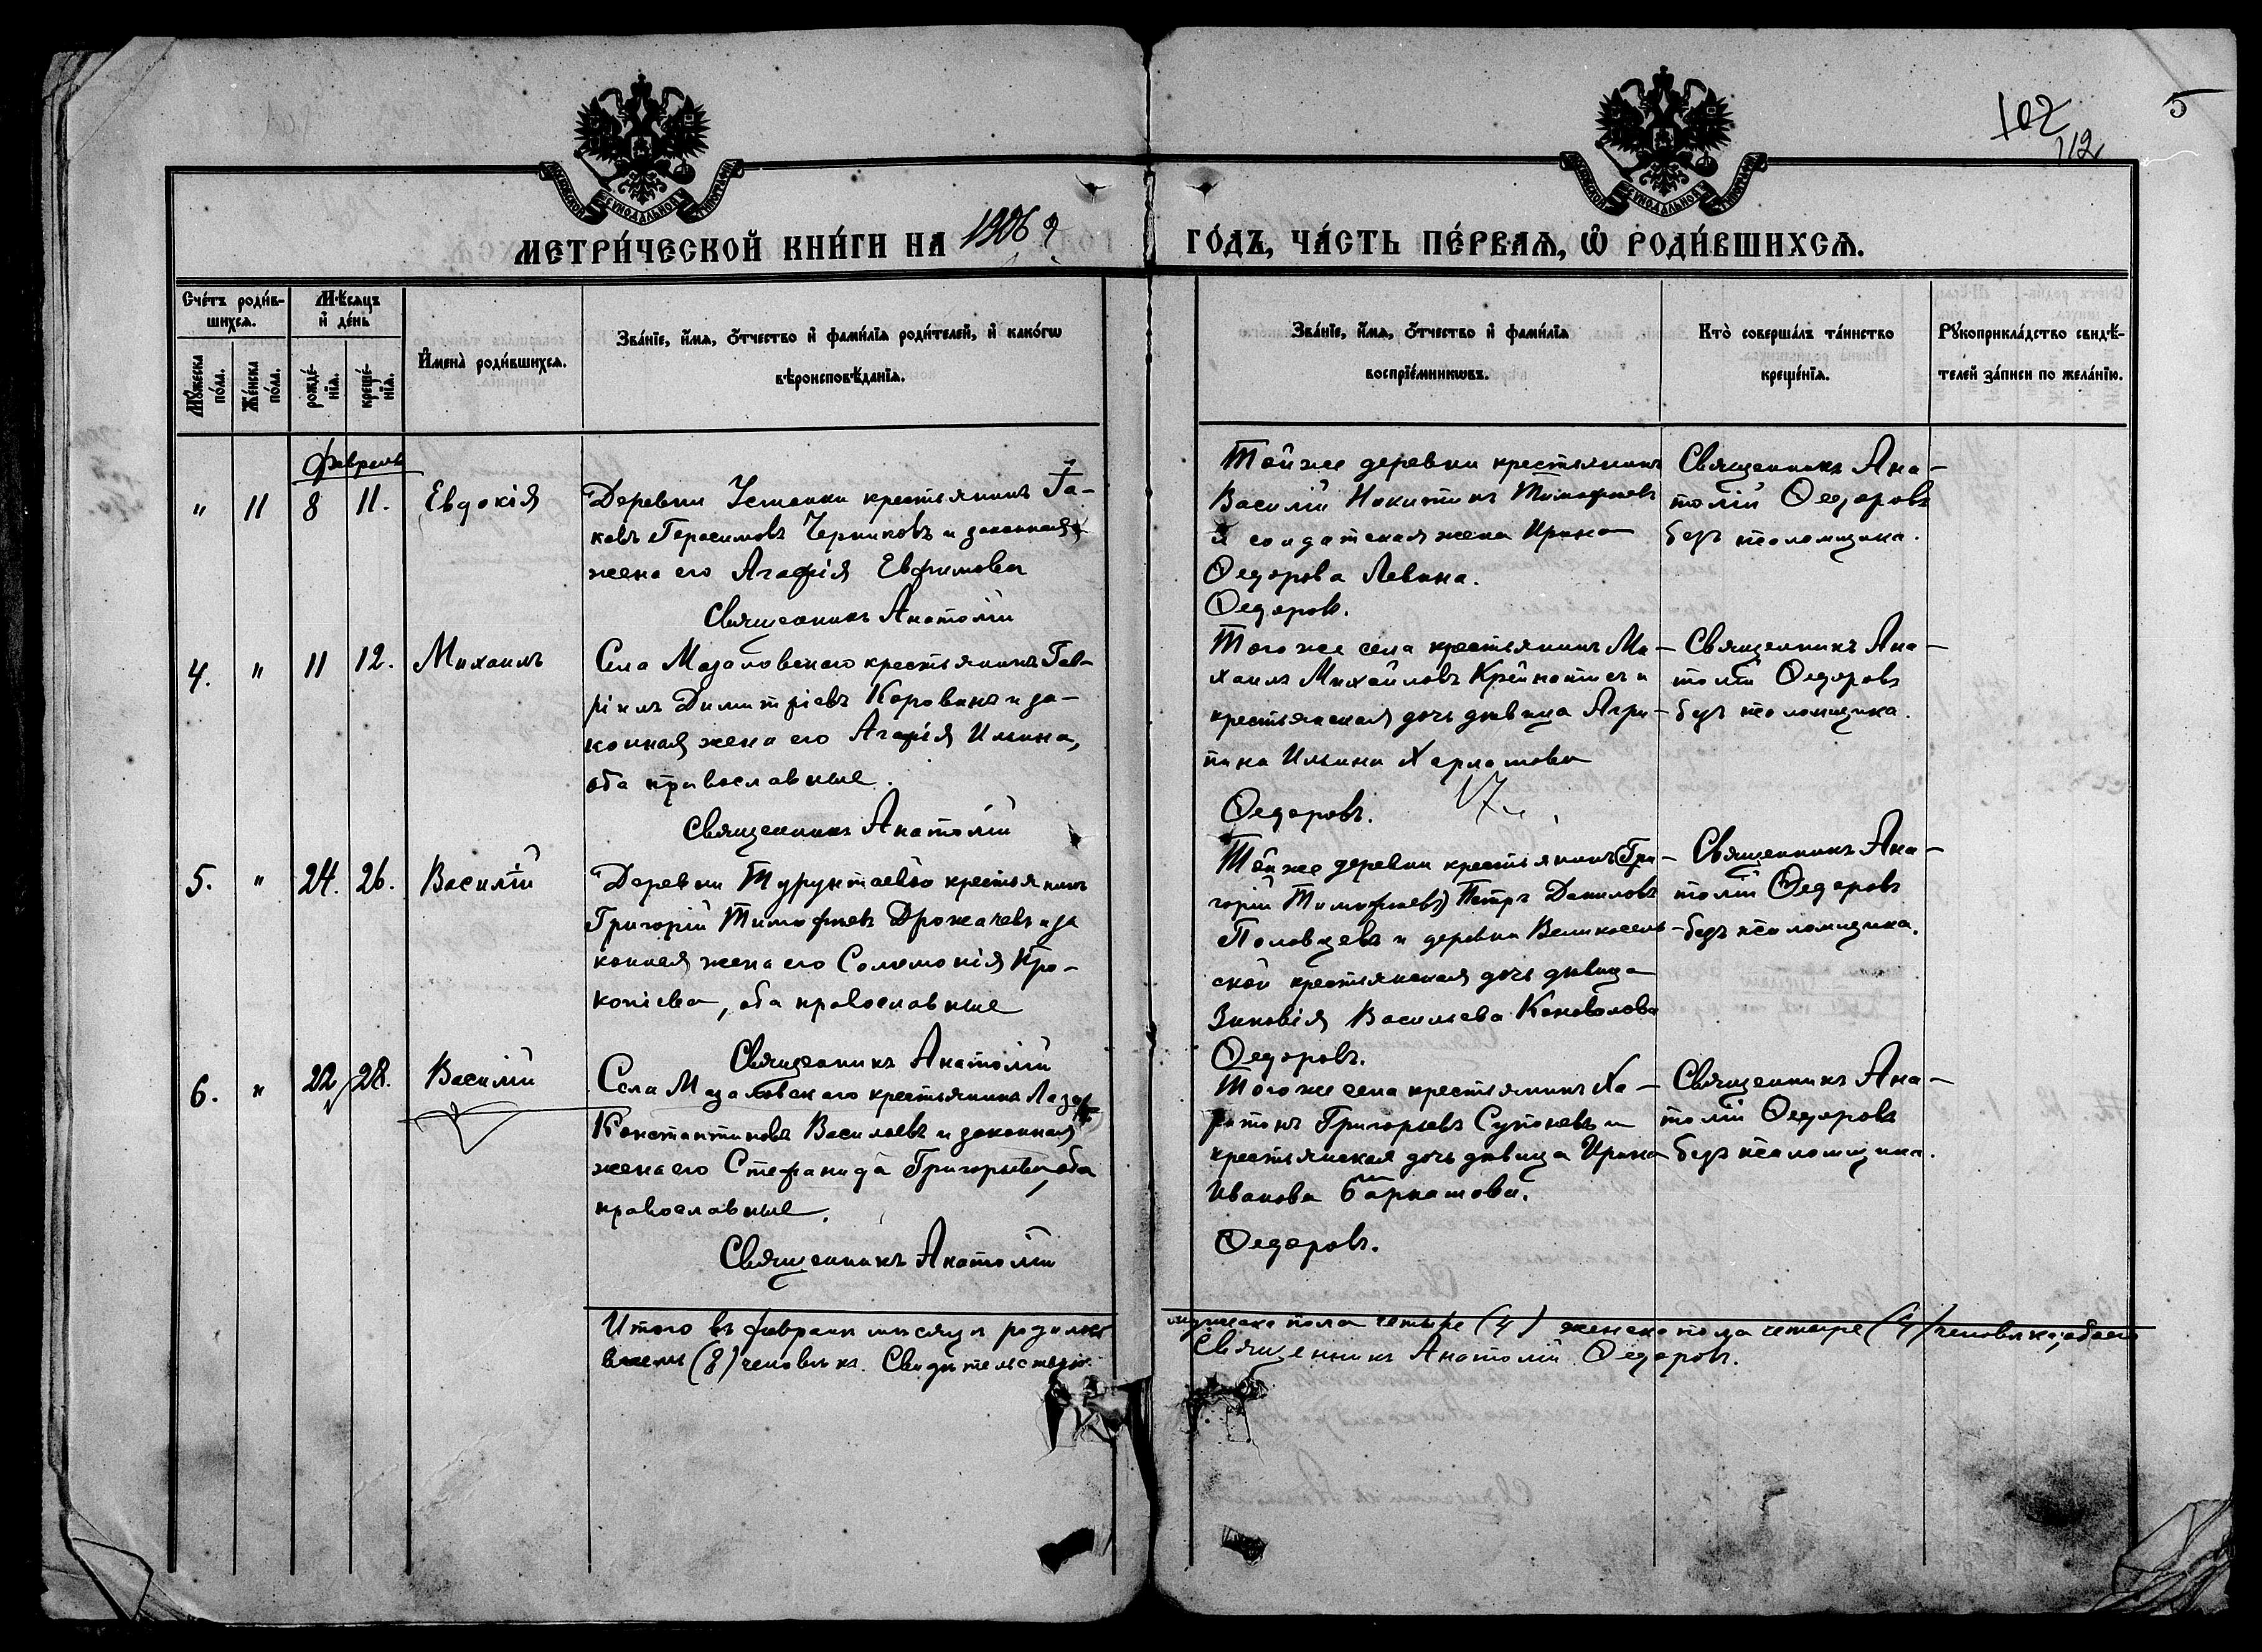 102
112
5
МЕТРИ́ЧЕСКОЙ КНИ́ГИ НА 1906 г. ГО́ДЪ, ЧА́СТЬ ПЕ́РВАѦ, Ѡ҆ РОДИ́ВШИХСѦ.
Сче́тъ роди́в-
шихсѧ.
Мꙋ́жеска по́ла.
Же́нска по́ла.
Мѣ́сѧцъ
и҆ де́нь
рожде́-
нїѧ.
креще́-
нїѧ.
И҆мена̀ роди́вшихсѧ.
Зва́нїе, и҆́мѧ, ѻ҆́тчество и҆ фамѝлїѧ роди́телей, и҆ како́гѡ
вѣроисповѣ́данїѧ.
Зва́нїе, и҆́мѧ, ѻ҆́тчество и҆ фамѝлїѧ
воспрїе́мникѡвъ.
Кто̀ соверша́лъ та́инство
креще́нїѧ.
Рꙋкоприкла́дство свидѣ́-
телей за́писи по жела́нїю.
Февраль
" 11 8 11. Евдокія
Деревни Устанки крестьянинъ Іа-
ковъ Герасимовъ Черниковъ и законная
жена его Агафія Евфимова
Священникъ Анатолій
Той же деревни крестьянинъ
Василій Никитинъ Тимофеевъ
и солдатская жена Ирина
Ѳедорова Левина.
Ѳедоровъ.
Священникъ Ана-
толій Ѳедоровъ
безъ псаломщика.
4. " 11 12. Михаилъ
Села Мазаловскаго крестьянинъ Гав-
ріилъ Димитріевъ Коровинъ и за-
конная жена его Агафія Ильина,
оба православные.
Священникъ Анатолій
Того же села крестьянинъ Ми-
хаилъ Михайловъ и
крестьянская дочь дѣвица Агри-
пина Ильина Харламова
Ѳедоровъ.
Священникъ Ана-
толій Ѳедоровъ
безъ псаломщика.
5. " 24. 26. Василій
Деревни Турунтаевой крестьянинъ
Григорій Тимофеевъ Дрожачевъ и за
конная жена его Соломонія Про-
копіева, оба православные
Священникъ Анатолій
Той же деревни крестьянинъ (Гри-
горій Тимофеевъ) Петръ Даниловъ
Половцевъ и деревни Великосель-
ской крестьянская дочь дѣвица
Зиновія Васильева Коновалова
Ѳедоровъ.
Священникъ Ана-
толій Ѳедоровъ
безъ псаломщика.
6. " 22 28. Василій
Села Мазаловскаго крестьянинъ
Константиновъ Васильевъ и законная
жена его Стефанида Григорьева, оба
православные.
Священникъ Анатолій
Того же села крестьянинъ Ха-
ритонъ Григорьевъ и
крестьянская дочь дѣвица Ирина
Иванова
Ѳедоровъ.
Священникъ Ана-
толій Ѳедоровъ
безъ псаломщика.
Итого въ февралѣ мѣсяцѣ родилось мужска пола четыре (4) женска пола четыре (4) человѣка, обоего
восемь (8) человѣкъ. Свидѣтельствую Священникъ Анатолій Ѳедоровъ.